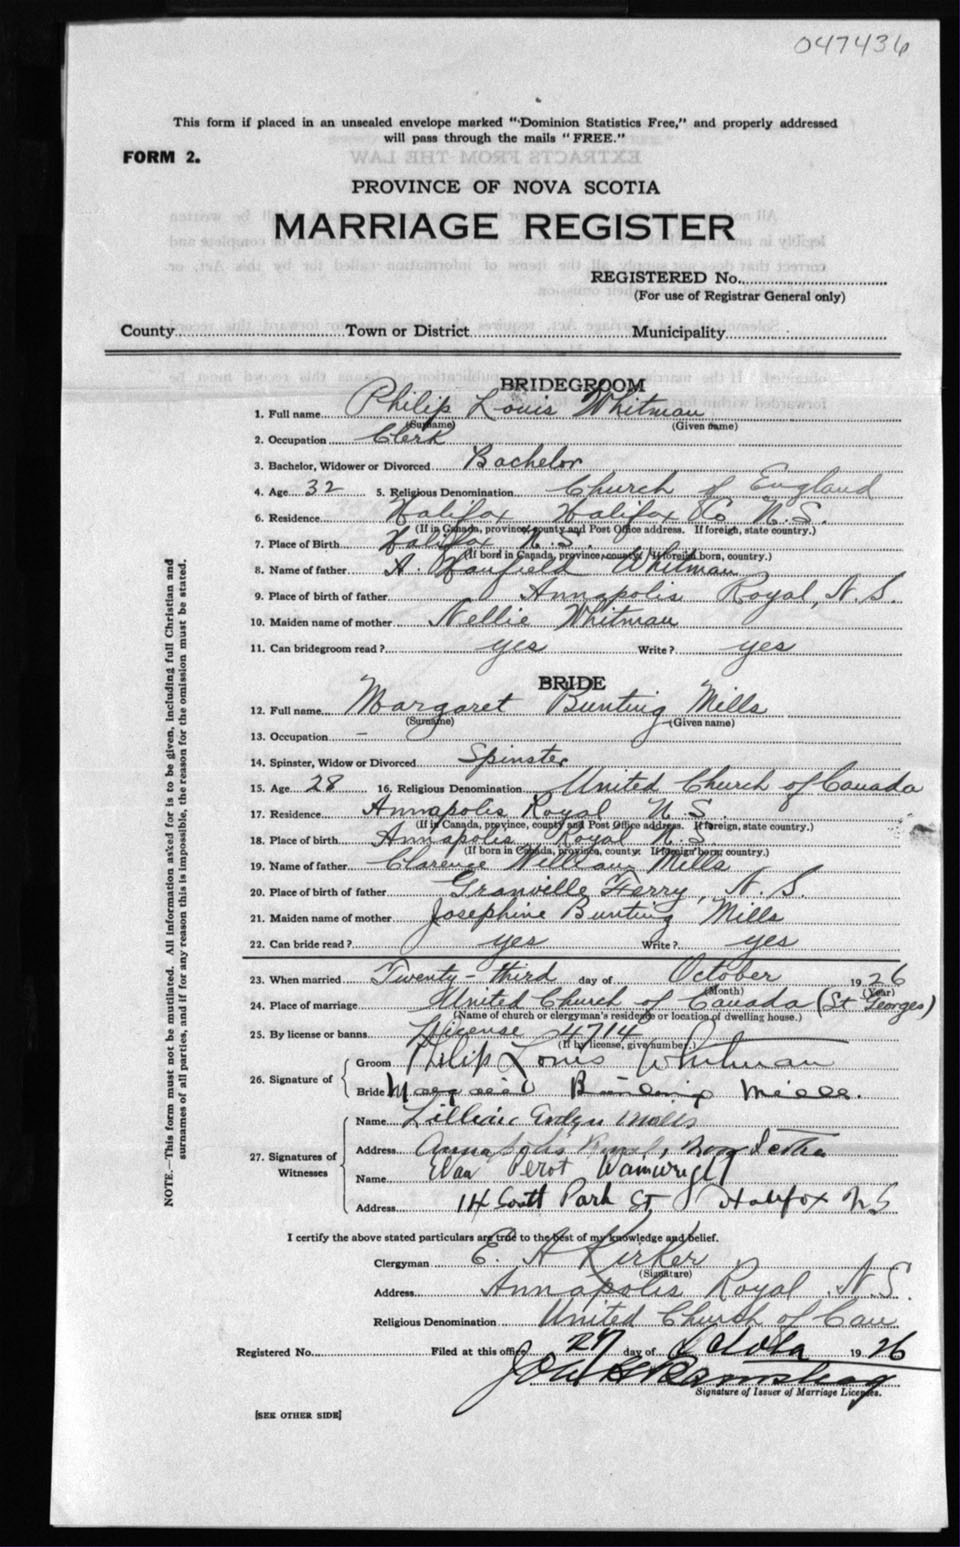 047436
This form if placed in an unsealed envelope marked "Dominion Statistics Free," and properly addressed
will pass through the mails "FREE."
FORM 2.
PROVINCE OF NOVA SCOTIA
MARRIAGE REGISTER
REGISTERED No.
(For use of Registrar General only)
County Town or District Municipality
BRIDEGROOM
1. Full name Philip Louis Whitman
(Surname) (Given name)
2. Occupation Clerk
3. Bachelor, Widower or Divorced Bachelor
4. Age 32 5. Religious Denomination Church of England
6. Residence Halifax Halifax Co N.S.
(If in Canada, province, county and Post Office address. If foreign, state country.)
7. Place of Birth Halifax N.S.
(If born in Canada, province, county. If foreign born, country.)
8. Name of father A. Whitman
9. Place of birth of father Annapolis Royal, N.S.
10. Maiden name of mother Nellie Whitman
11. Can bridegroom read? yes Write? yes
BRIDE
12. Full name Margaret Bunting Mills
(Surname) (Given name)
13. Occupation -
14. Spinster, Widow or Divorced Spinster
15. Age 28 16. Religious Denomination United Church of Canada
17. Residence Annapolis Royal N.S.
(If in Canada, province, county and Post Office address. If foreign, state country.)
18. Place of birth Annapolis Royal N.S.
(If born in Canada, province, county. If foreign born, country.)
19. Name of father Clarence William Mills
20. Place of birth of father Granville Ferry, N.S.
21. Maiden name of mother Josephine Bunting Mills
22. Can bride read? yes Write? yes
23. When married Twenty-third day of October 1926
(Month) (Year)
24. Place of marriage United Church of Canada (St Georges)
(Name of church or clergyman's residence or location of dwelling house.)
25. By license or banns License 4714
(If by license, give number.)
26. Signature of Groom Philip Louis Whitman
Bride Margaret Bunting Mills.
27. Signatures of Witnesses
Name Lillian Evelyn Mills
Address Annapolis Royal, Nova Scotia
Name Perot Wainwright
Address 14 South Park St Halifax N S
I certify the above stated particulars are true to the best of my knowledge and belief.
Clergyman E. A Kirker
(Signature)
Address Annapolis Royal N.S.
Religious Denomination United Church of Can
Registered No. Filed at this office 27 day of October 1926
Signature of Issuer of Marriage Licenses.
[SEE OTHER SIDE]
NOTE.—This form must not be mutilated. All information asked for is to be given, including full Christian and
surnames of all parties, and if for any reason this is impossible, the reason for the omission must be stated.